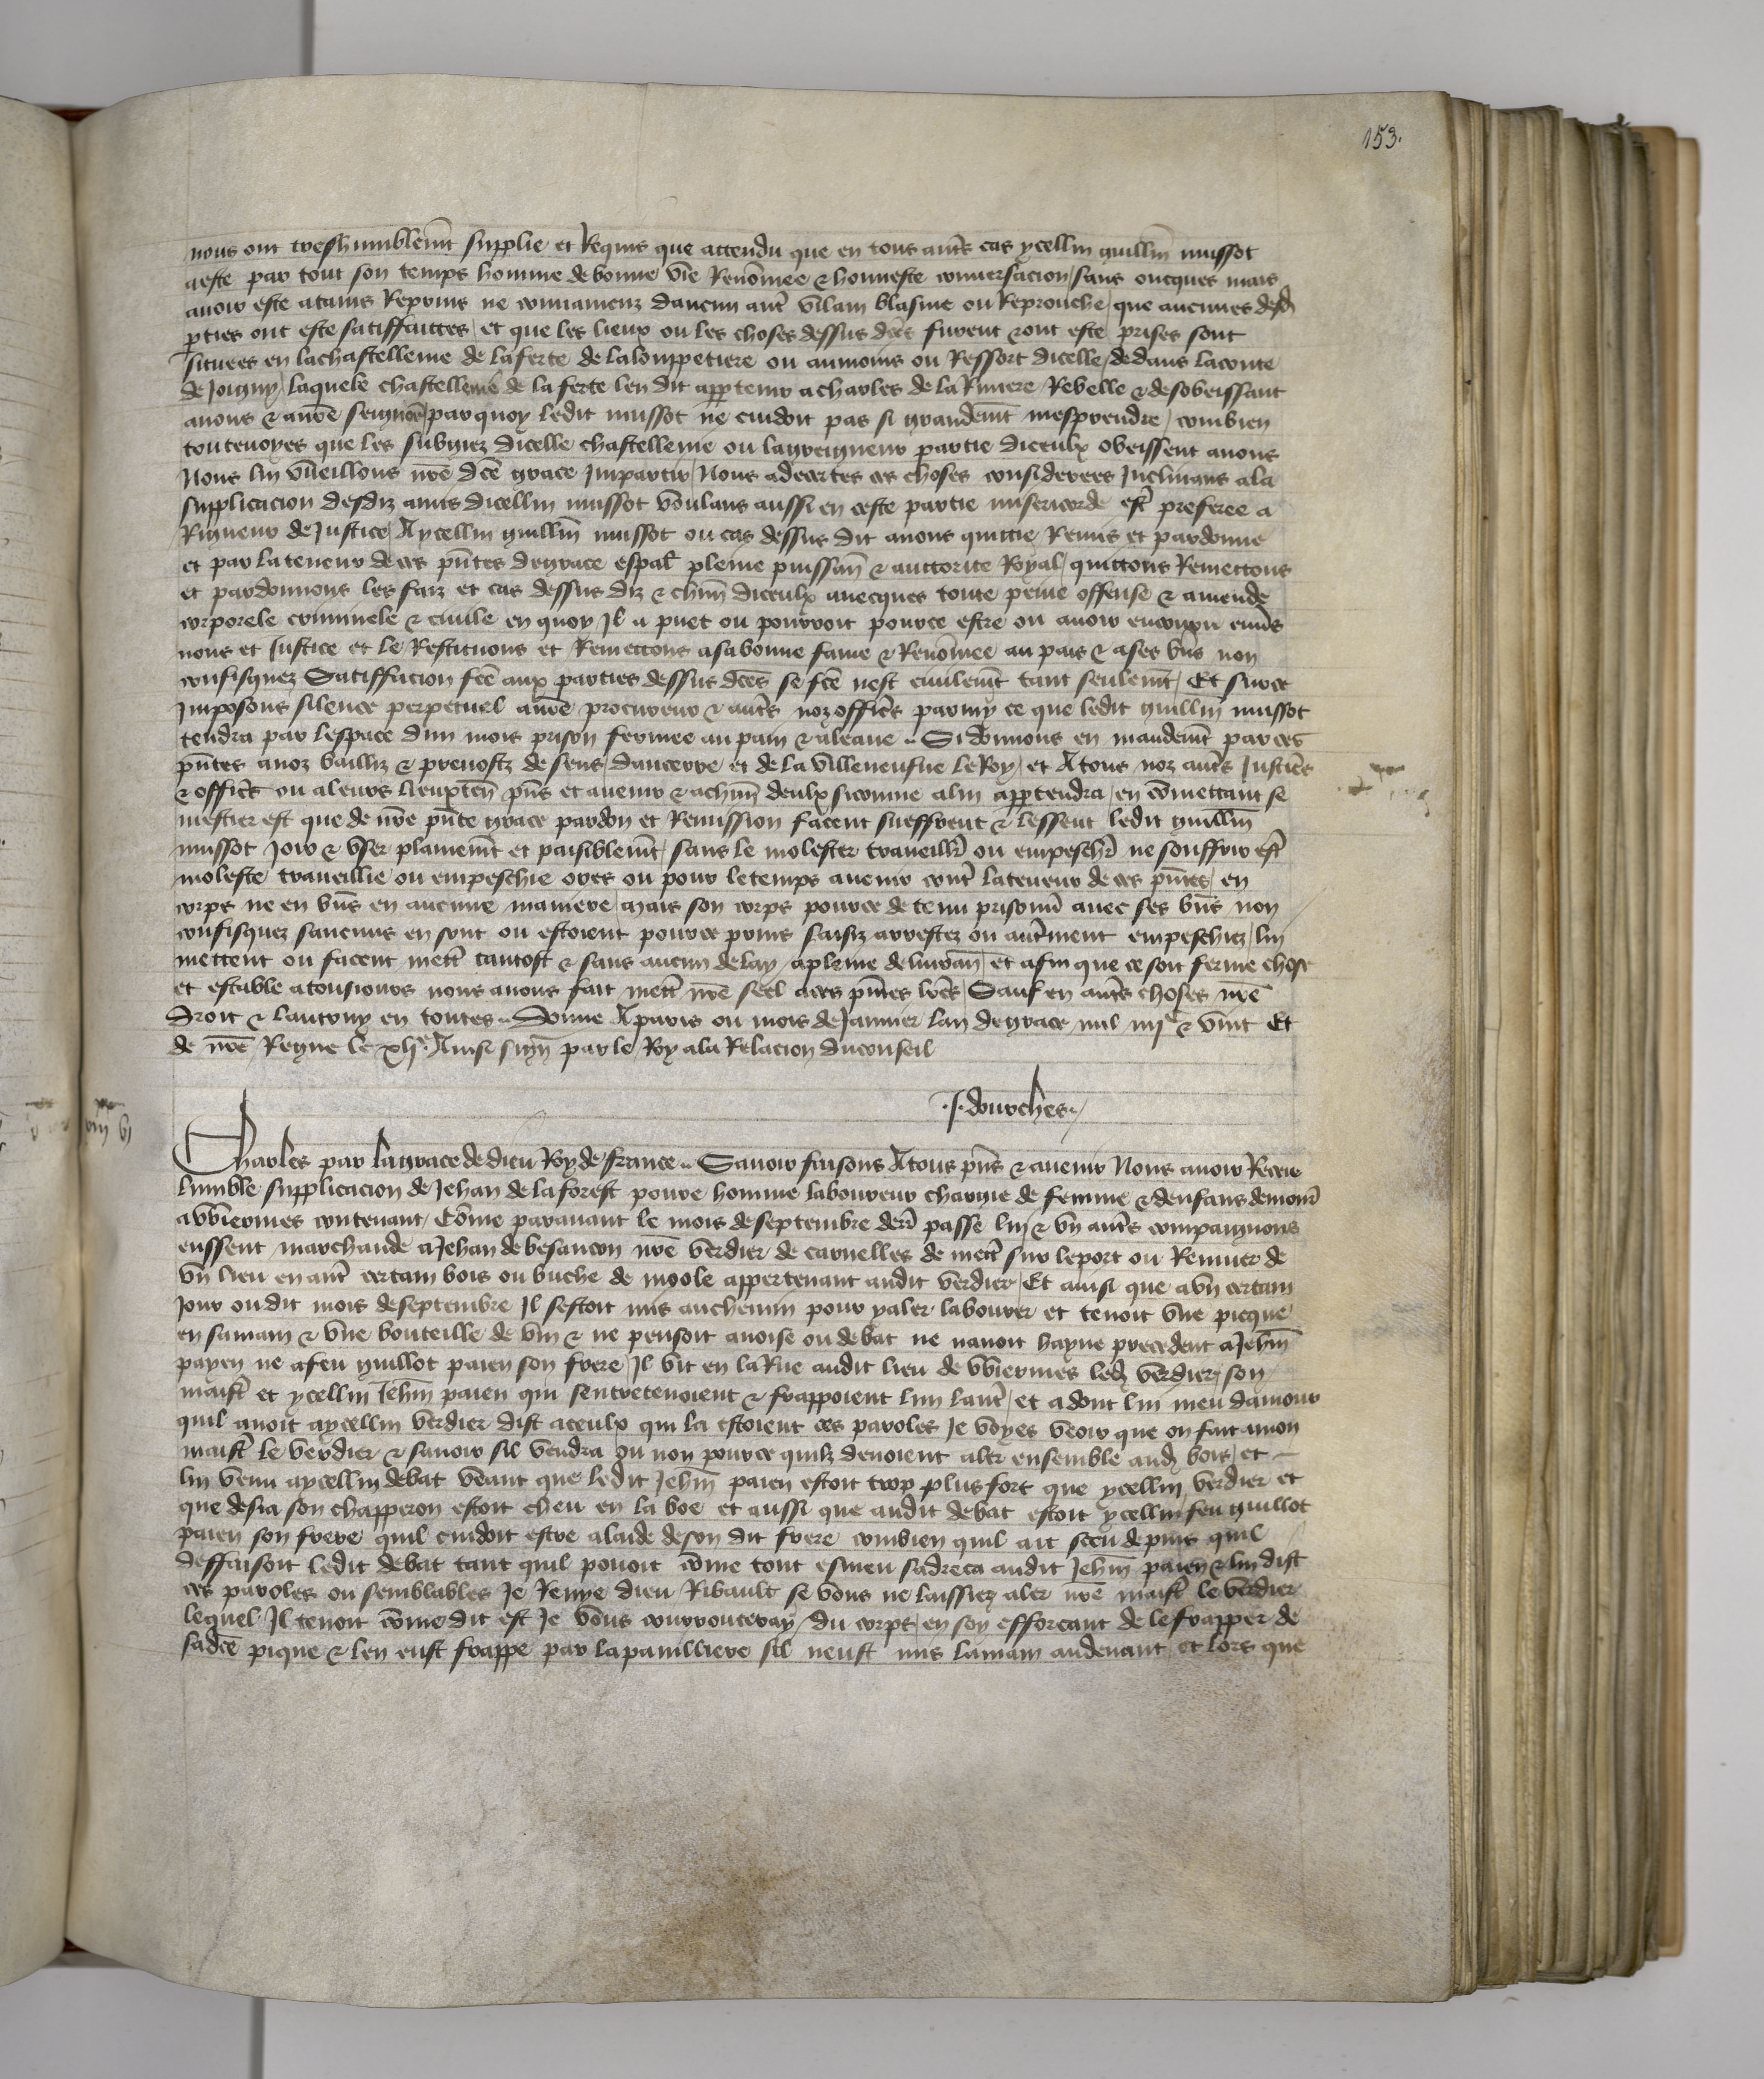 153.
nous ont treshumblemt supplie et Requis que attendu que en tous autˢ cas ycellui guillm̄ mussot
a este par tout son temps homme de bonne vie Renōmee & honneste conuersacion sans oncques mais
auoir este ataint Repruis ne conuaincuz daucun autˢ vilain blasme ou Reprouche que aucunes desd̄
pties ont este satiffaittes et que les lieux ou les choses dessus dc̄es furent & ont este prises sont
situees en la chastellenie de la ferte de la loupetiere ou aumoins ou Ressort dicelle de dans la conte
de Joigny laquele chastellenie de la ferte len dit apptenir a charles de la Riuiere Rebelle & desobeissant
a nous & a nr̄e seignor̄ par quoy ledit mussot ne cuidoit pas si grandemt mesprendre combien
toutenoyes que les subgiez dicelle chastellenie ou la greigneur partie diceulx obeissent a nous
Nous lui vueillons nr̄e dc̄e grace Impartir Nous adecertes ces choses considerees Inclinans a la
supplicacion desdiz amis dicellui mussot voulans aussi en ceste partie misericorde estˢ preferee a
Rigueur de Justice A ycellui guillm̄ mussot ou cas dessus dit auons quittie Remis et pardonne
et par la teneur de ces pn̄tes de grace espal̄ pleine puissan̄ & auttorite Royal quittons Remettons
et pardonnons les faiz et cas dessus diz & chūn diceulx auecques toute peine offense & amende
corporele criminele & ciuile en quoy Il a puet ou pourroit pource estre ou auoir encouru enūs
nous et Justice et le Restituons et Remettons a sa bonne fame & Renōmee au pais & a ses bn̄s non
confisquez Satiffacion fc̄e aux parties dessus dc̄es se fc̄e nest ciuilemt tant seulemt Et sur ce
Imposons silence perpetuel a nr̄e procureur & autˢ noz officˢ parmy ce que ledit guillm̄ mussot
tendra par lespace dun mois prison fermee au pain & a leaue Si donnons en mandemt par ces
pn̄tes a noz bailliz & preuostz de sens daucerre et de la villeneufue le Roy et A tous noz autˢ Justicˢ
& officˢ ou a leurs lieuxten̄ pn̄s et auenir & a chūn deulx sicomme a lui apptendra en cōmettant se
mestier est que de nr̄e pn̄te grace pardon et Remission facent sueffrent & lessent ledit guillm̄
mussot Joir & vser plainemt et paisiblemt sans le molester traueillˢ ou empeschˢ ne souffrir estˢ
moleste traueillie ou empeschie ores ou pour le temps auenir contˢ la teneur de ces pn̄tes en
corps ne en bn̄s en aucune maniere mais son corps pource detenu prisonnˢ auec ses bn̄s non
confisquez saucuns en sont ou estoient pource prins saisiz arrestez ou autˢment empeschiez lui
mettent ou facent mettˢ tantost & sans aucun delay a pleine deliuran̄ et afin que ce soit ferme chose
et estable a tousiours nous auons fait mettˢ nr̄e seel a ces pn̄tes lr̄es Sauf en autˢ choses nr̄e
droit & lautruy en toutes Donne A paris ou mois de Januier lan de grace mil iiijᶜ & vint Et
de nr̄e Regne le xljᵉ Ainsi sign̄ par le Roy a la Relacion du conseil
.J. dourches.
Charles par la grace de dieu Roy de france Sauoir faisons A tous pn̄s & auenir Nous auoir Receu
lumble supplicacion de Jehan de la forest poure homme laboureur chargie de femme & denfans demourˢ
a vviermes contenant Cōme parauant le mois de septembre derˢ passe lui & vn autˢ compaignons
eussent marchande a Jehan de besancon nr̄e verdier de carnelles de mettˢ sur le port ou Remuer de
vn lieu en autˢ certain bois ou buche de moole appertenant audit verdier Et ainsi que a vn certain
Jour oudit mois de septembre Il sestoit mis au chemin pour y aler labourer et tenoit vne picque
en sa main & vne bouteille de vin & ne pensoit a noise ou debat ne nauoit hayne precedent a Jehn̄
payen ne a feu guillot paien son frere Il vit en la Rue audit lieu de vviermes led̄ verdier son
maistˢ et ycellui Jehn̄ paien qui sentretenoient & frappoient lun lautˢ et adont lui meu damour
quil auoit a ycellui verdier dist a ceulx qui la estoient ces paroles Je voyes veoir que on fait a mon
maistˢ le verdier & sauoir sil vendra ou non pource quilz deuoient aler ensemble aud̄ bois et
lui venu a ycellui debat veant que ledit Jehn̄ paien estoit trop plus fort que ycellui verdier et
que desia son chapperon estoit cheu en la boe et aussi que audit debat estoit ycellui feu guillot
paien son frere quil cuidoit estre a laide de son dit frere combien quil ait sceu depuis quil
deffaisoit ledit debat tant quil pouoit cōme tout esmeu sadreca audit Jehn̄ paien & lui dist
ces paroles ou semblables Je Renye dieu Ribault se vous ne laissiez aler nr̄e maistˢ le verdier
lequel Il tenoit cōme dit est Je vous courrouceray du corps en soy efforcant de le frapper de
sadc̄e pique & len eust frappe par la panilliere sil neust mis la main audeuant et lors que